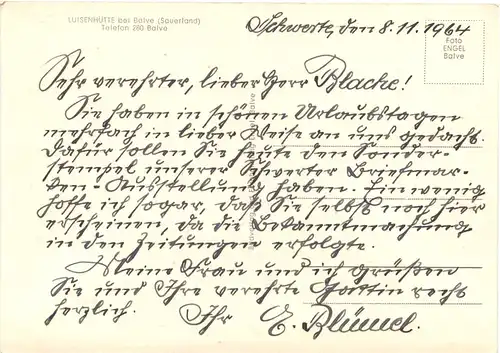 LUISENHÜTTE bei Balve (Sauerland)
Telefon 260 Balve
Schwerte, den 8.11.1964
Foto
ENGEL
Balve
Sehr verehrter, lieber Herr Blache!
Sie haben in schönen Urlaubstagen
mehrfach in lieber Weise an uns gedacht.
Dafür sollen Sie heute den Sonder-
stempel unserer Schwerter Briefmar-
ken-Ausstellung haben. Ein wenig
hoffe ich sogar, daß Sie selbst noch hier
erscheinen, da die Bekanntmachung
in den Zeitungen erfolgte.
Meine Frau und ich grüßen
Sie und Ihre verehrte Gattin recht
herzlich. Ihr E. Blümel.